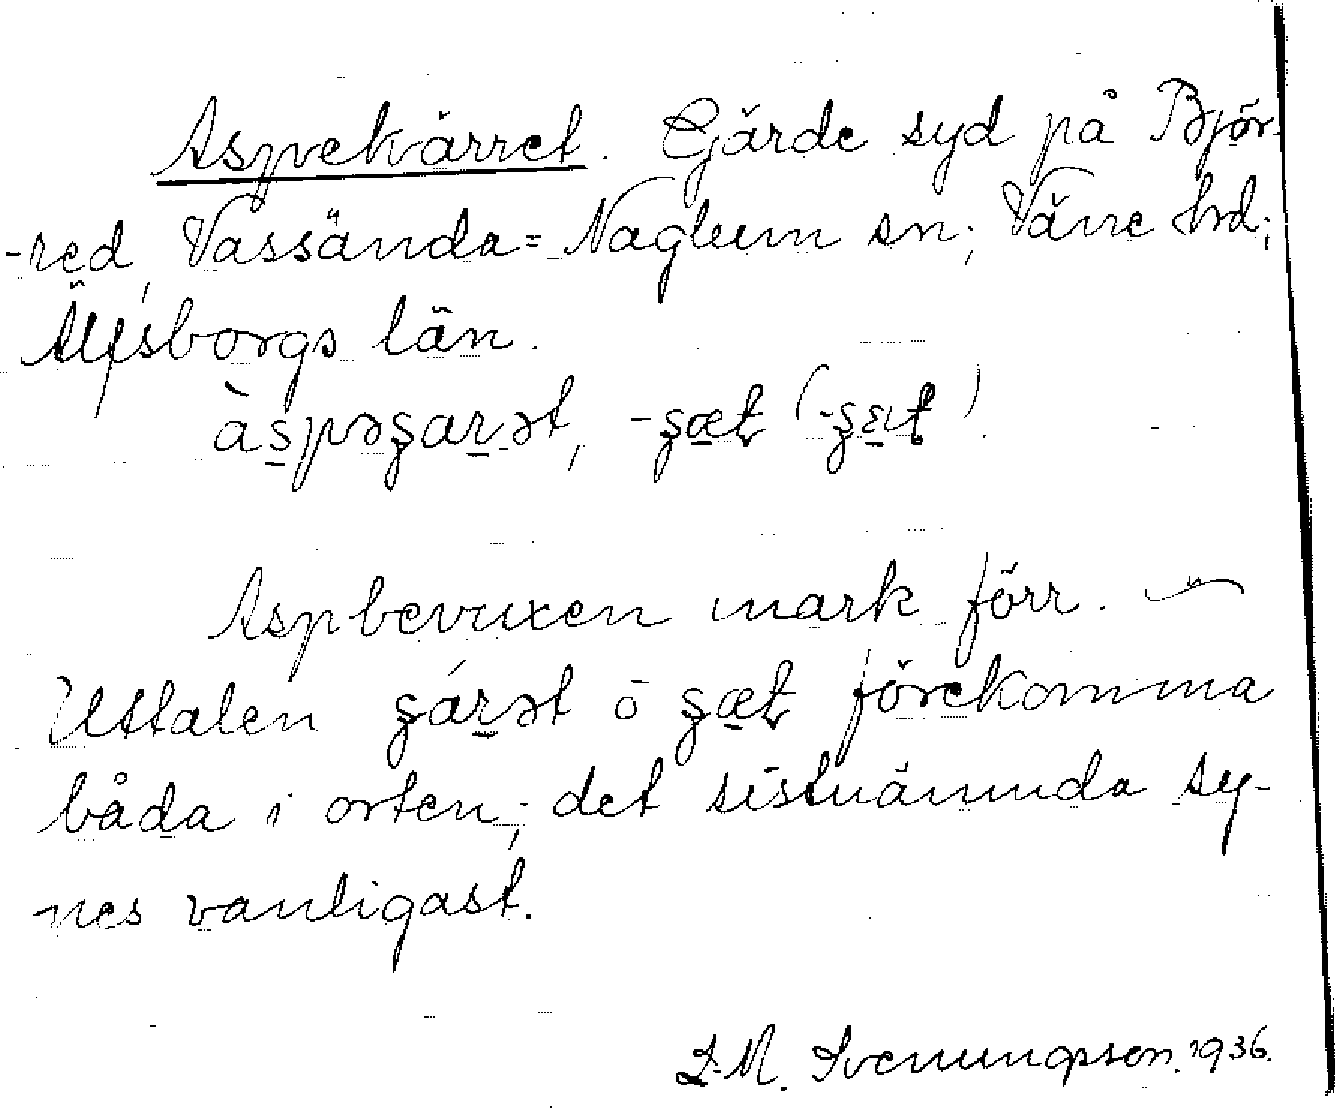 Aspekärret. Gärde syd på Björ-
-red, Vassända=Naglum sn; Väne hd;
Älfsborgs län.
àspəʂarət, -ʂæt (-ʂɛt)
Aspbevuxen mark förr. –
Uttalen ʂárət o ʂæt förekomma
båda i orten; det sistnämnda sy-
nes vanligast.
L.M. Svenungsson. 1936.